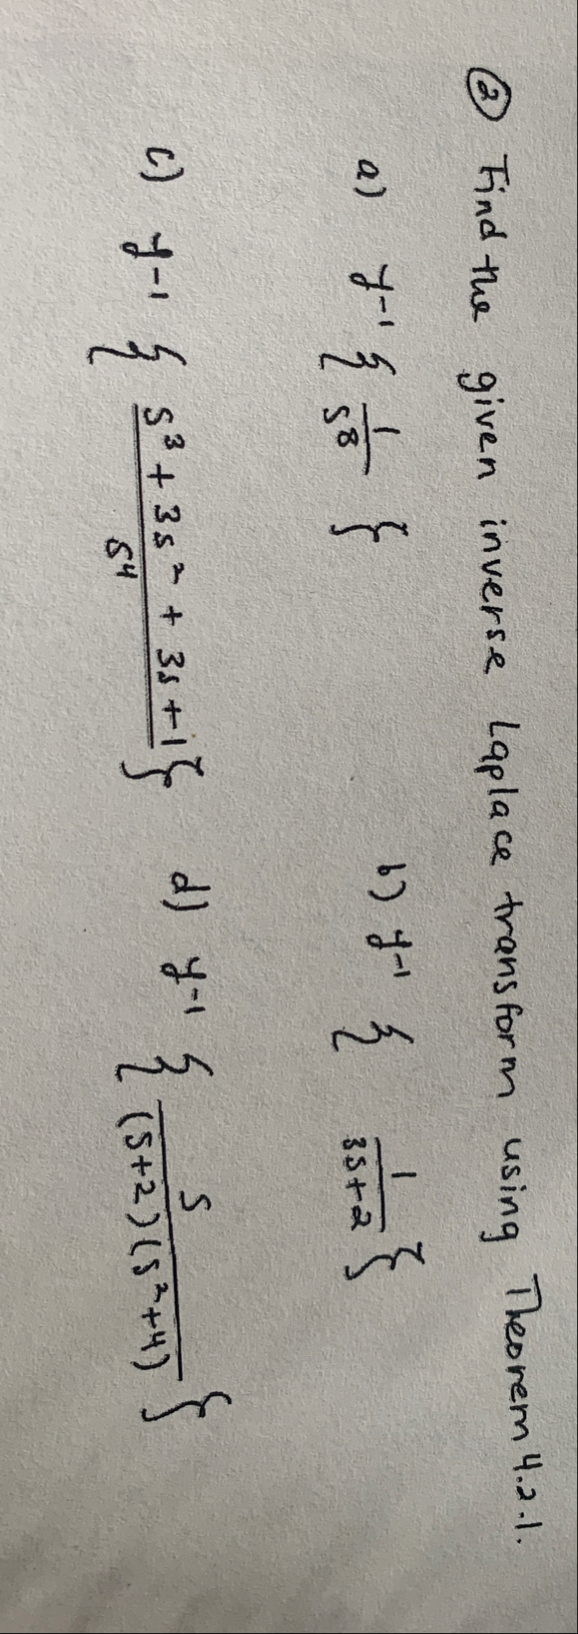 ② Find the given inverse Laplace transform using Theorem 4.2.1.
a) y⁻¹ { 1/s⁸ } b) y⁻¹ { 1/3s+2 }
c) y⁻¹ { s³ + 3s² + 3s + 1/s⁴ } d) y⁻¹ { s/(s+2)(s²+4) }